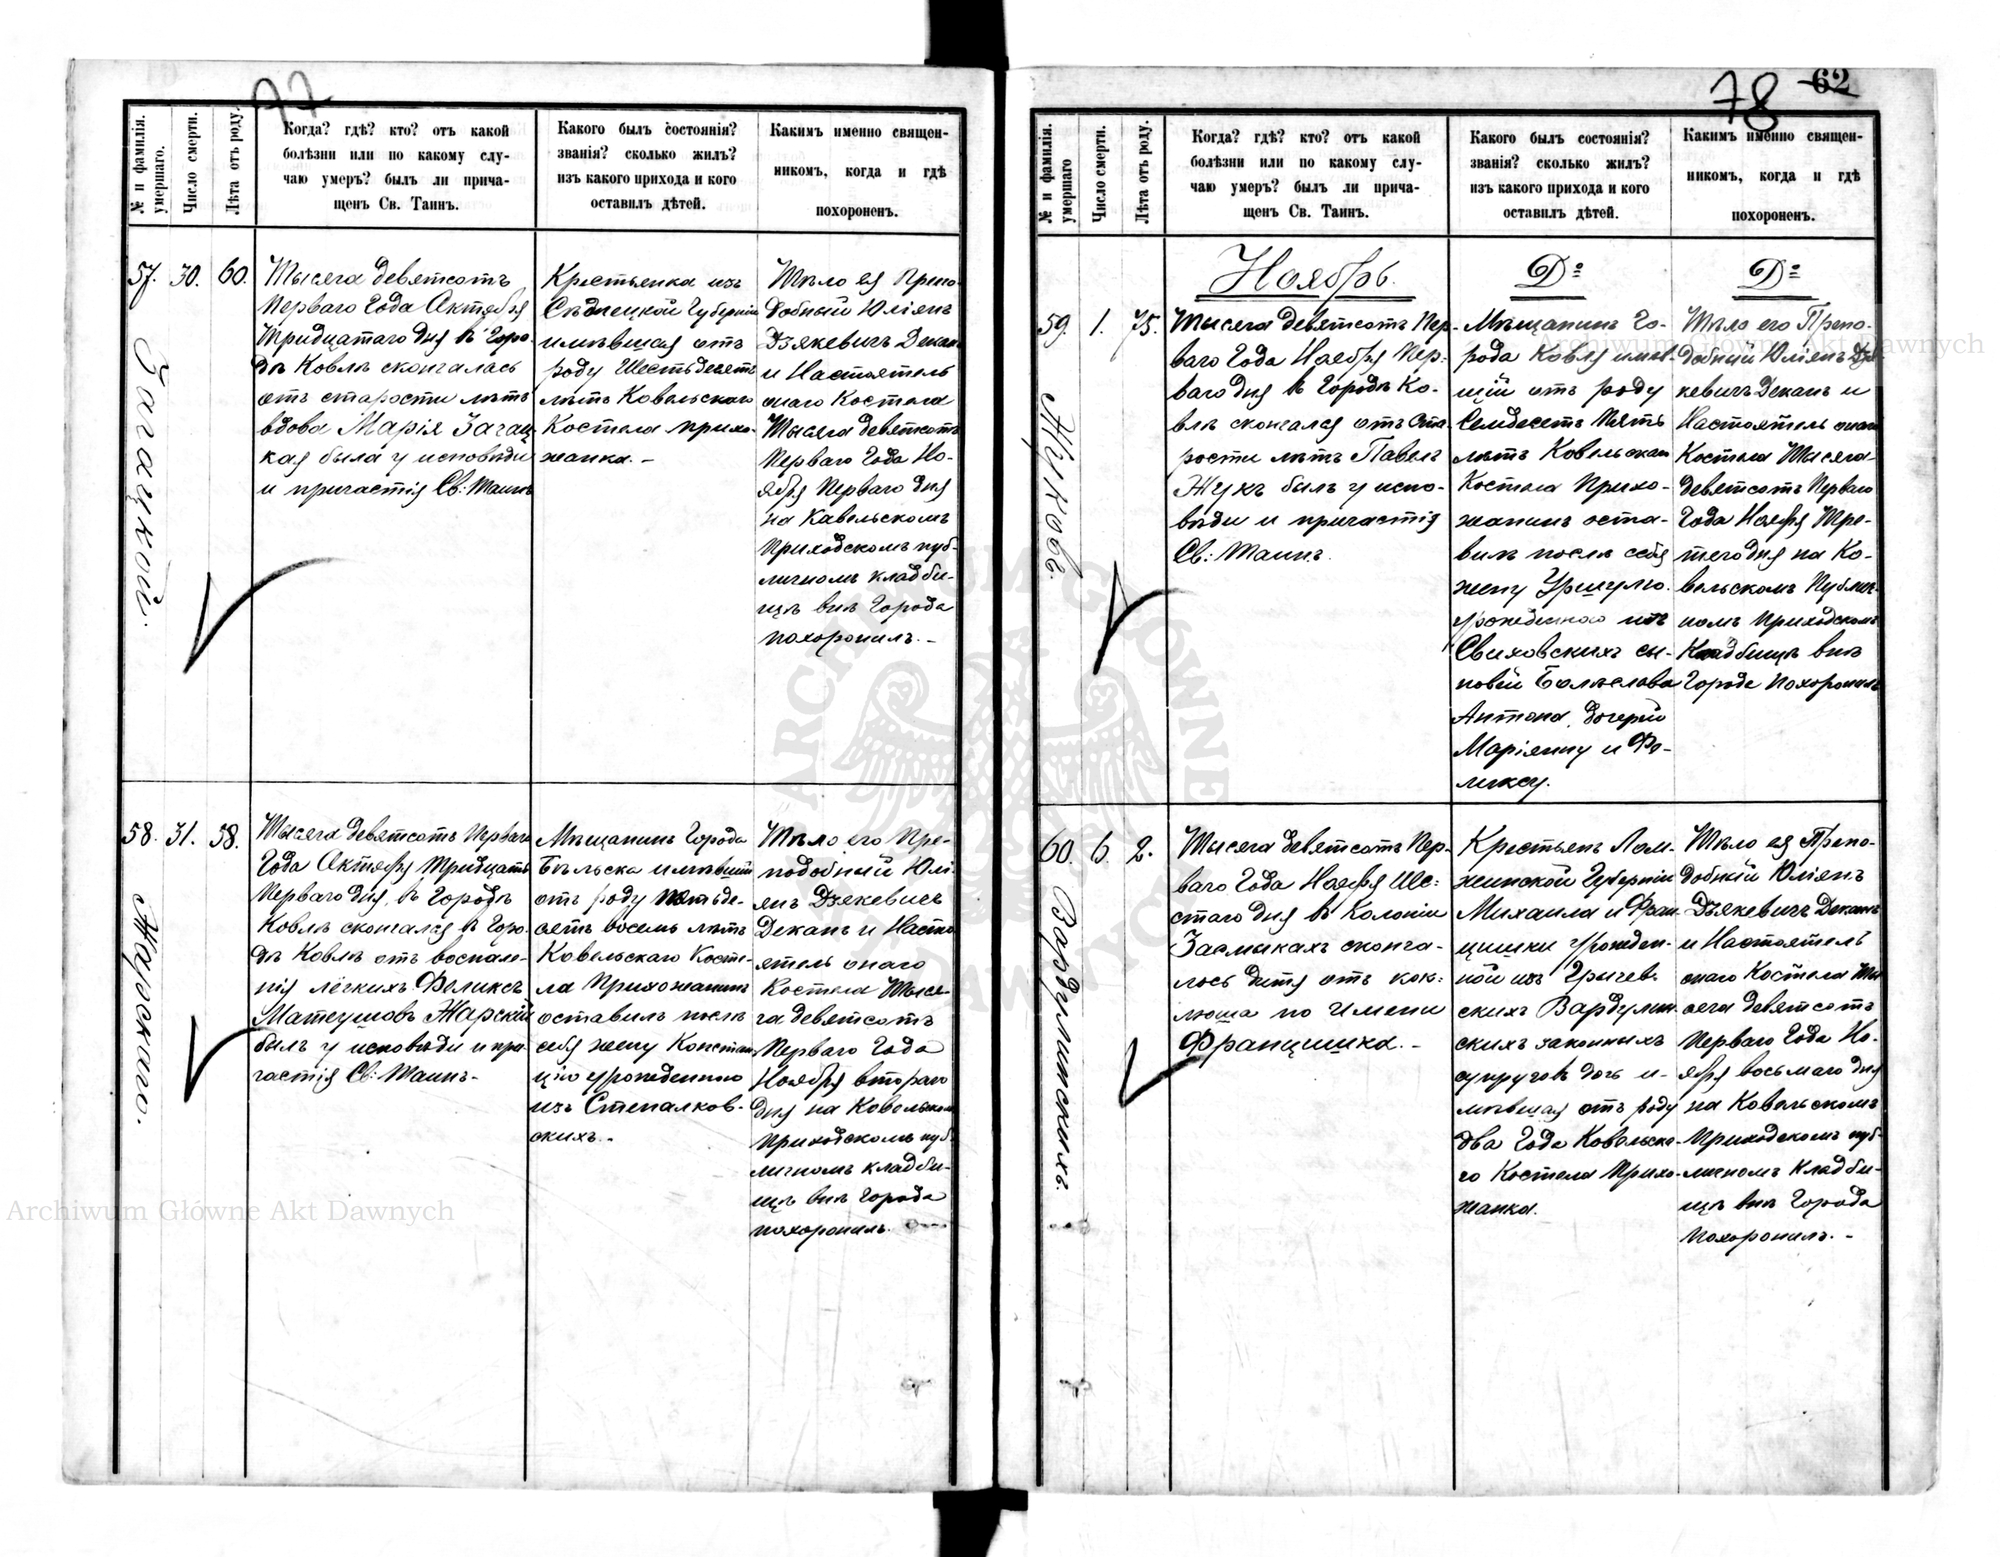 77
№ и фамилія.
умершаго.
Число смерти.
Лѣта отъ роду.
Когда? гдѣ? кто? отъ какой
болѣзни или по какому слу-
чаю умеръ? былъ ли прича-
щенъ Св. Таинъ.
Какого былъ состоянія?
званія? сколько жилъ?
изъ какого прихода и кого
оставилъ дѣтей.
Какимъ именно священ-
никомъ, когда и гдѣ
похороненъ.
57.
Загацкой.
30.
60.
Тысяча девятсотъ
Перваго Года Октября
Тридцатаго дня въ Горо-
дѣ Ковлѣ скончалась
отъ старости лѣтъ
вдова Марія Загац
кая была у исповѣди
и причастія Св: Таинъ
Крестьянка изъ
Сѣдлецкой Губерніи
имѣвшая отъ
роду Шестьдесятъ
лѣтъ Ковельскаго
Костела прихо-
жанка. -
Тѣло ея Препо-
добный Юліянъ
Дзякевичъ Декан
и Настоятель
онаго Костела
Тысяча девятсотъ
Перваго Года Но-
ября Перваго дня
на Кавельскомъ
Приходскомъ пуб-
личномъ кладби-
щѣ внѣ Города
похоронилъ. -
58.
Жарскаго.
31.
58.
Тысяча девятсотъ Перваго
Года Октября Тридцать
Перваго дня, въ Городѣ
Ковлѣ скончался въ Горо-
дѣ Ковлѣ отъ воспале-
нія лёгкихъ Феликсъ
Матеушовъ Жарскій
былъ у исповѣди и при-
частія Св: Таинъ-
Мѣщанинъ Города
Бѣльска имѣвшій
отъ роду пятьде-
сятъ восемь лѣтъ
Ковельскаго Косте-
ла Прихожанинъ
оставилъ послѣ
себя жену Констан
цію урожденною
изъ Степалков-
скихъ. -
Тѣло его Пре-
подобный Юлі-
янъ Дзякевичъ
Деканъ и Насто
ятель онаго
Костела Тыся-
ча девятсотъ
Перваго Года
Ноября втораго
дня на Ковельском
Приходскомъ пуб-
личномъ кладби-
щѣ внѣ Города
похоронилъ.
78
62
№ и фамилія.
умершаго
Число смерти.
Лѣта отъ роду.
Когда? гдѣ? кто? отъ какой
болѣзни или по какому слу-
чаю умеръ? былъ ли прича-
щенъ Св. Таинъ.
Какого былъ состоянія?
званія? сколько жилъ?
изъ какого прихода и кого
оставилъ дѣтей.
Какимъ именно священ-
никомъ, когда и гдѣ
похороненъ.
Ноябрь.
До
До
59.
Жуковъ.
1.
75.
Тысяча девятсотъ Пер-
ваго Года Ноября Пер-
ваго дня въ Городѣ Ко-
влѣ скончался отъ Ста-
рости лѣтъ Павелъ
Жукъ былъ у испо-
вѣди и причастія
Св: Таинъ.
Мѣщанинъ Го-
рода Ковля имѣв-
щій отъ роду
Семдесетъ Пять
лѣтъ Ковельскаго
Костела Прихо-
жанинъ оста-
вилъ послѣ себя
жену Уршулю.
урожденною изъ
Свиховскихъ сы-
новей Болеслава
Антона, дочерей
Маріянну и Фе-
ликсу.
Тѣло его Препо-
добный Юліянъ Дзя
кевичъ Деканъ и
Настоятель онаго
Костела Тысяча
девятсотъ Перваго
Года Ноября Тре-
тего дня на Ко-
вельскомъ Публич-
номъ приходскомъ
Кладбищѣ внѣ
Города похоронилъ
60.
Вардулинскихъ.
6.
2.
Тысяча девятсотъ Пер-
ваго Года Ноября Ше:
стаго дня въ Колоніи
Засмыкахъ сконча-
лось дитя отъ кок:
люша по имени
Францишка. -
Крестьянъ Лом-
жинской Губерніи
Михаила и Фран
цишки урожден-
ной изъ Грычев-
скихъ Вардулин-
скихъ законныхъ
супруговъ дочь и-
мѣвшая отъ роду
два Года Ковельска-
го Костела Прихо-
жанка.
Тѣло ея Препо-
добный Юліянъ
Дзякевичъ Деканъ
и Настоятель
онаго Костела Ты
сяча девятсотъ
Перваго Года Но-
ября восьмаго дня
на Ковельскомъ
Приходскомъ пуб-
личномъ Кладби-
щѣ внѣ Города
Похоронилъ. -
Archiwum Główne Akt Dawnych
Archiwum Główne Akt Dawnych
ARCHIWUM GŁÓWNE AKT DAWNYCH